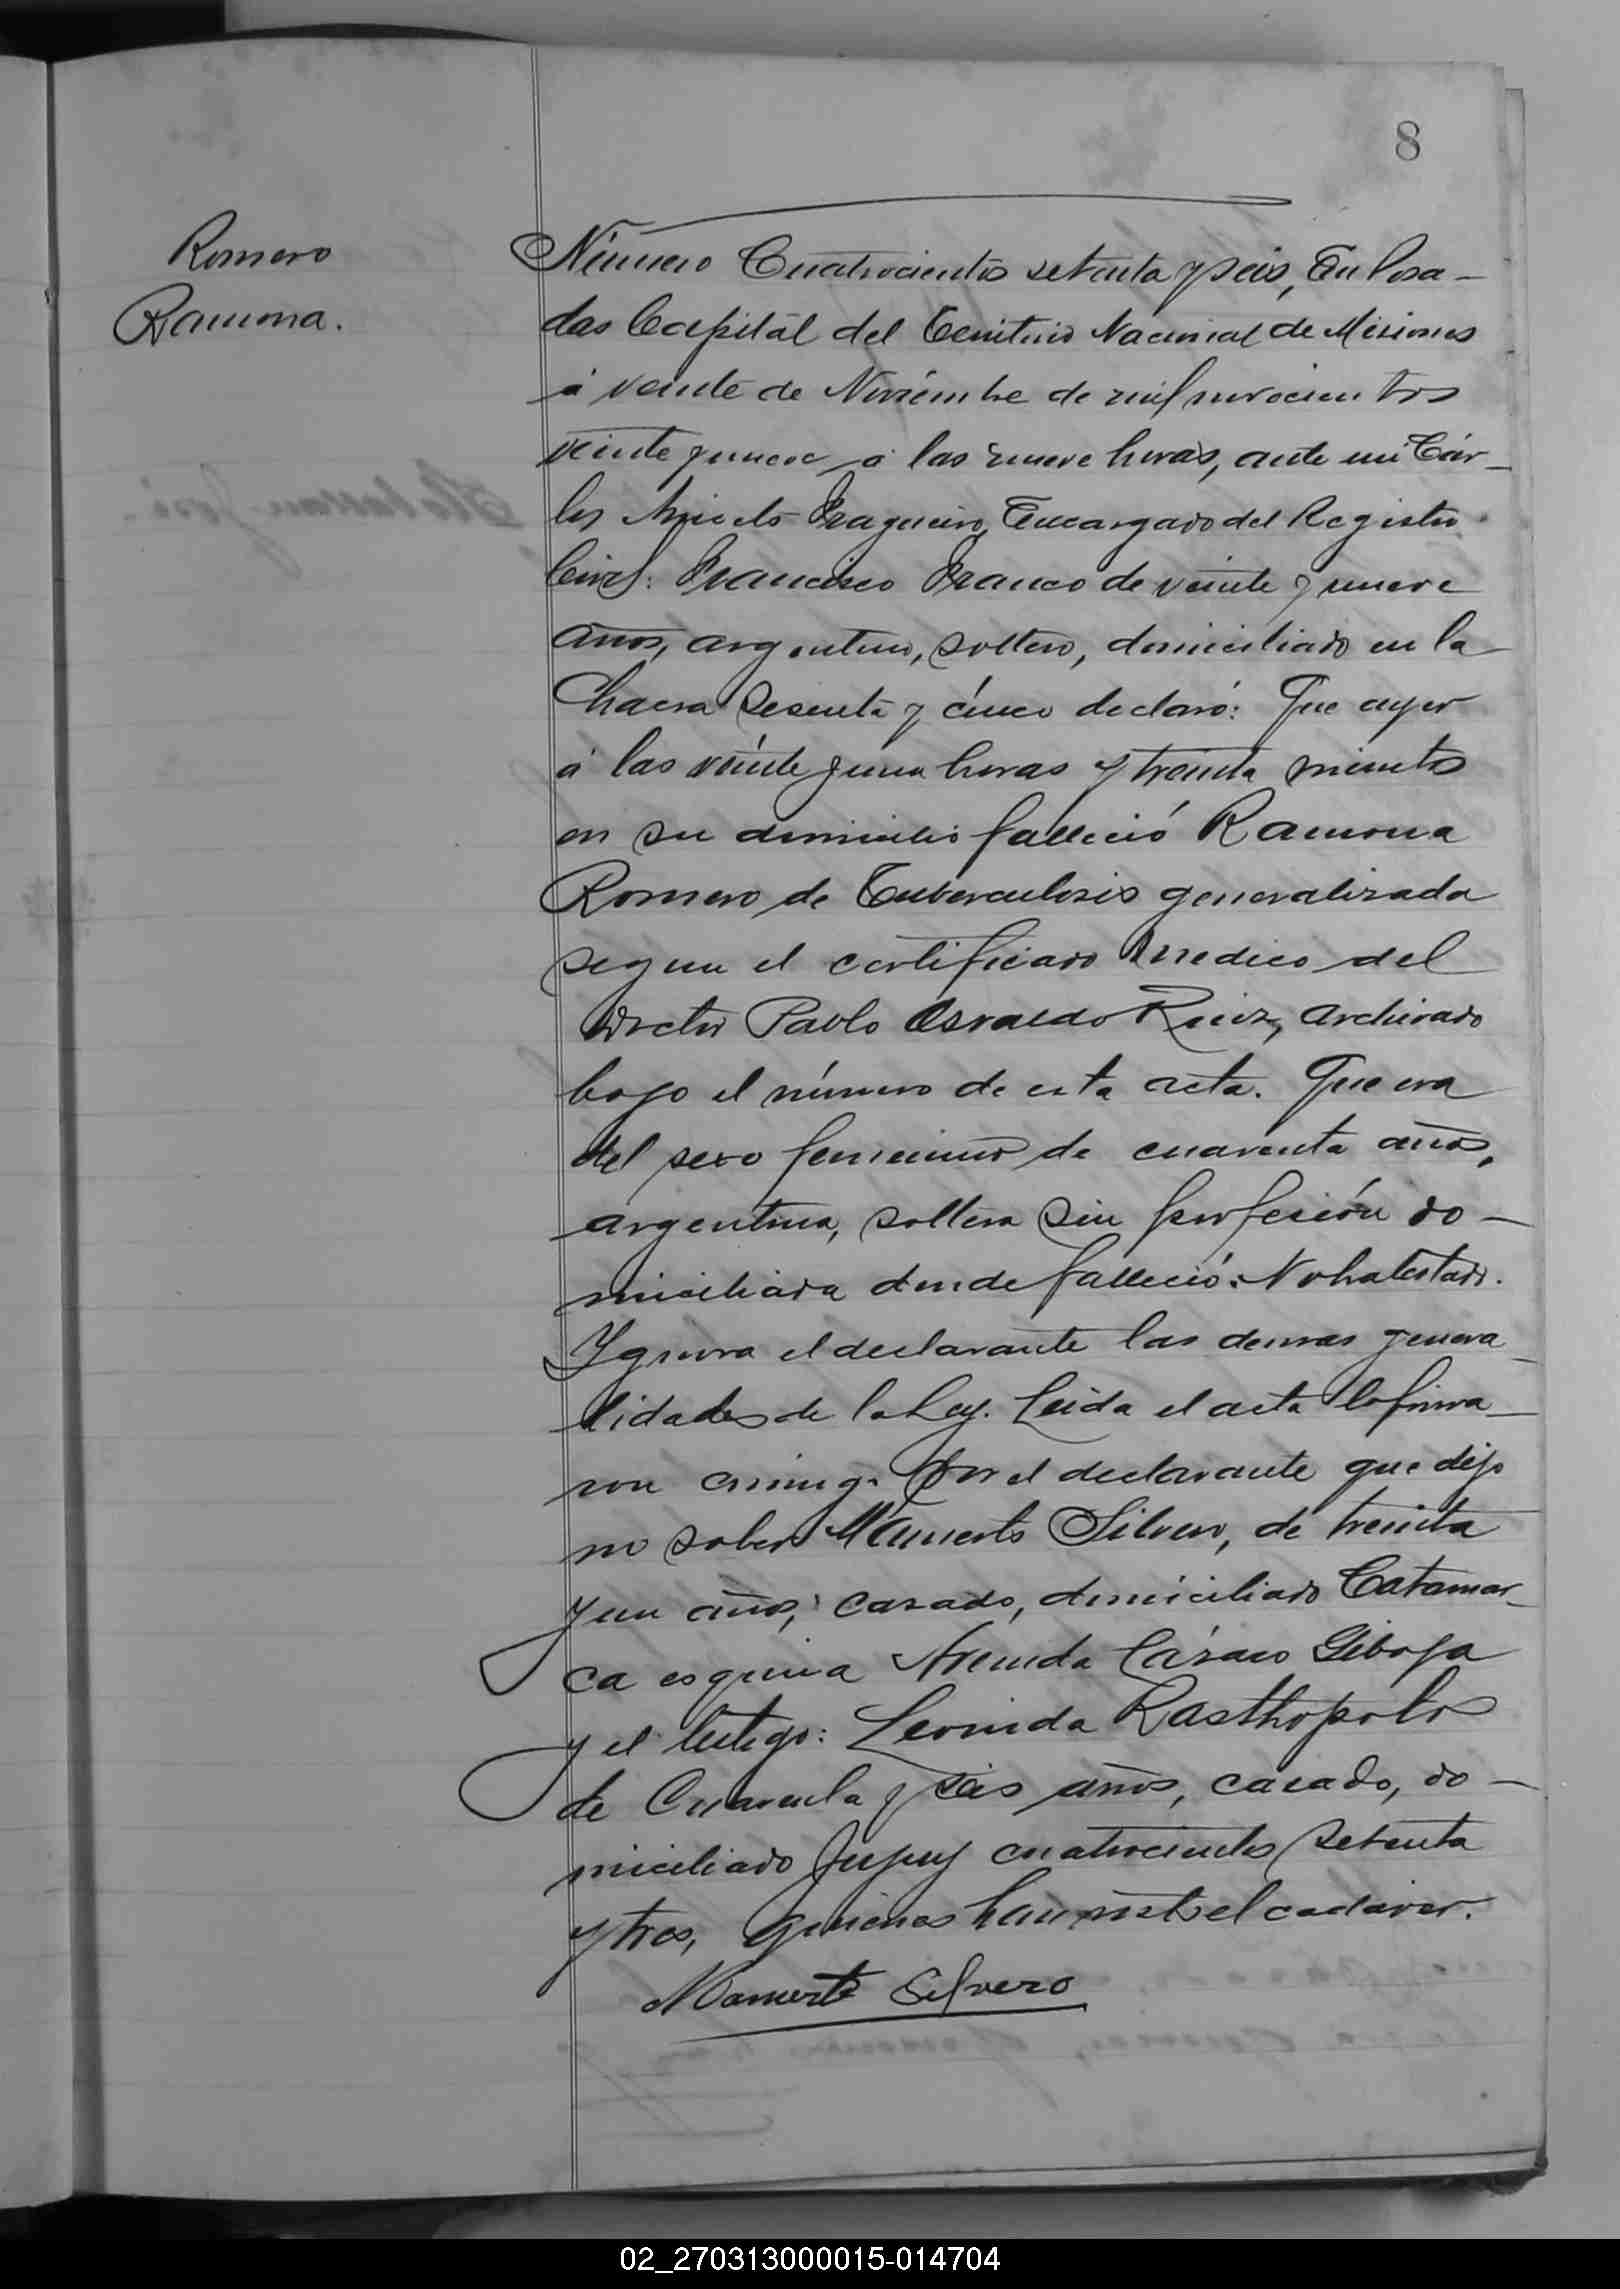 8
Romero
Ramona.
Número Cuatrocientos setenta y seis, En Posa-
das Capital del Territorio Nacional de Misiones
á veinte de Noviembre de mil novecientos
veinte y nueve á las nueve horas, ante mi Cár-
los Aniceto Fragueiro, Encargado del Registro
Civil: Francisco Franco de veinte y nueve
años, argentino, soltero, domiciliado en la
Chacra Sesenta y cinco declaró: Que ayer
á las veinte y una horas y treinta minutos
en su domicilio falleció Ramona
Romero de Tuberculosis generalizada
segun el certificado medico del
Doctor Pablo Osvaldo Ruiz, archivado
bajo el número de esta acta. Que era
del sexo femenino de cuarenta años,
argentina, soltera sin profesión do-
miciliada donde falleció. No ha testado.
Ygnora el declarante las demas genera-
lidades de la Ley. Leida el acta la firma-
ron conmigo. Por el declarante que dijo
no saber Mamerto Silvero, de treinta
y un años, casado, domiciliado Catamar-
ca esquina Avenida Cázaro
y el testigo: Leonida Rasthopolos
de Cuarenta y seis años, casado, do-
miciliado Jujuy cuatrocientos setenta
y tres, quienes han visto el cadáver.
Mamerto Silvero
02_270313000015-014704